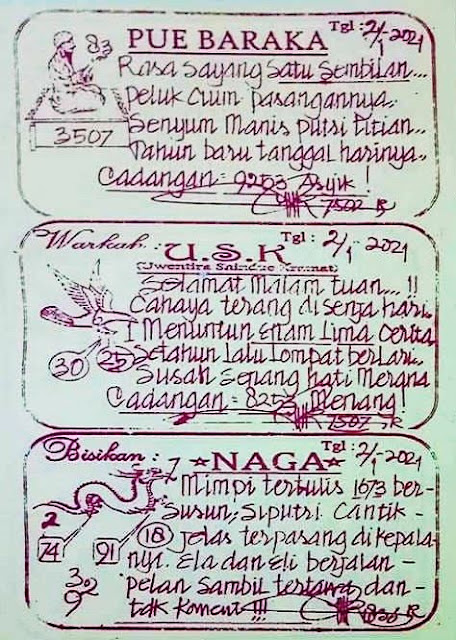 Tgl : 2/1-2021
83
PUE BARAKA
Rasa sayang satu sembilan...
peluk cium pasangannya.
3507
Senyum manis putri titian..
Tahun baru tanggal harinya..
Cadangan = 9253 Asyik !
1502
Warkah :
Tgl : 2/1-2021
U.S.K
(Uwentira Saindue Kramat)
Selamat malam tuan... !!
Cahaya terang di senja hari.
Menuntun enam lima cerita
30 25
Setahun lalu lompat berlari.
Susah senang hati merana
Cadangan = 8253 Menang!
1507
Bisikan :
Tgl : 2/1-2021
NAGA
Mimpi tertulis 1673 ber-
susun, siputri cantik -
2
18
jelas terpasang di kepala-
74 91
nya. Ela dan Eli berjalan -
pelan sambil tertawa dan-
39
2
9
tdk koment !!!
1836